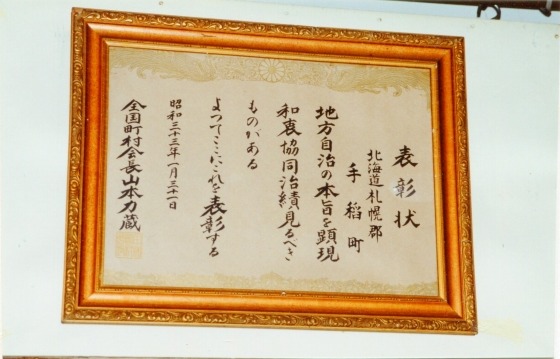 表彰状
北海道札幌郡
手稲町
地方自治の本旨を顕現
和衷協同治績見るべき
ものがある
よつてここにこれを表彰する
昭和三十三年一月三十一日
全国町村会長山本力蔵